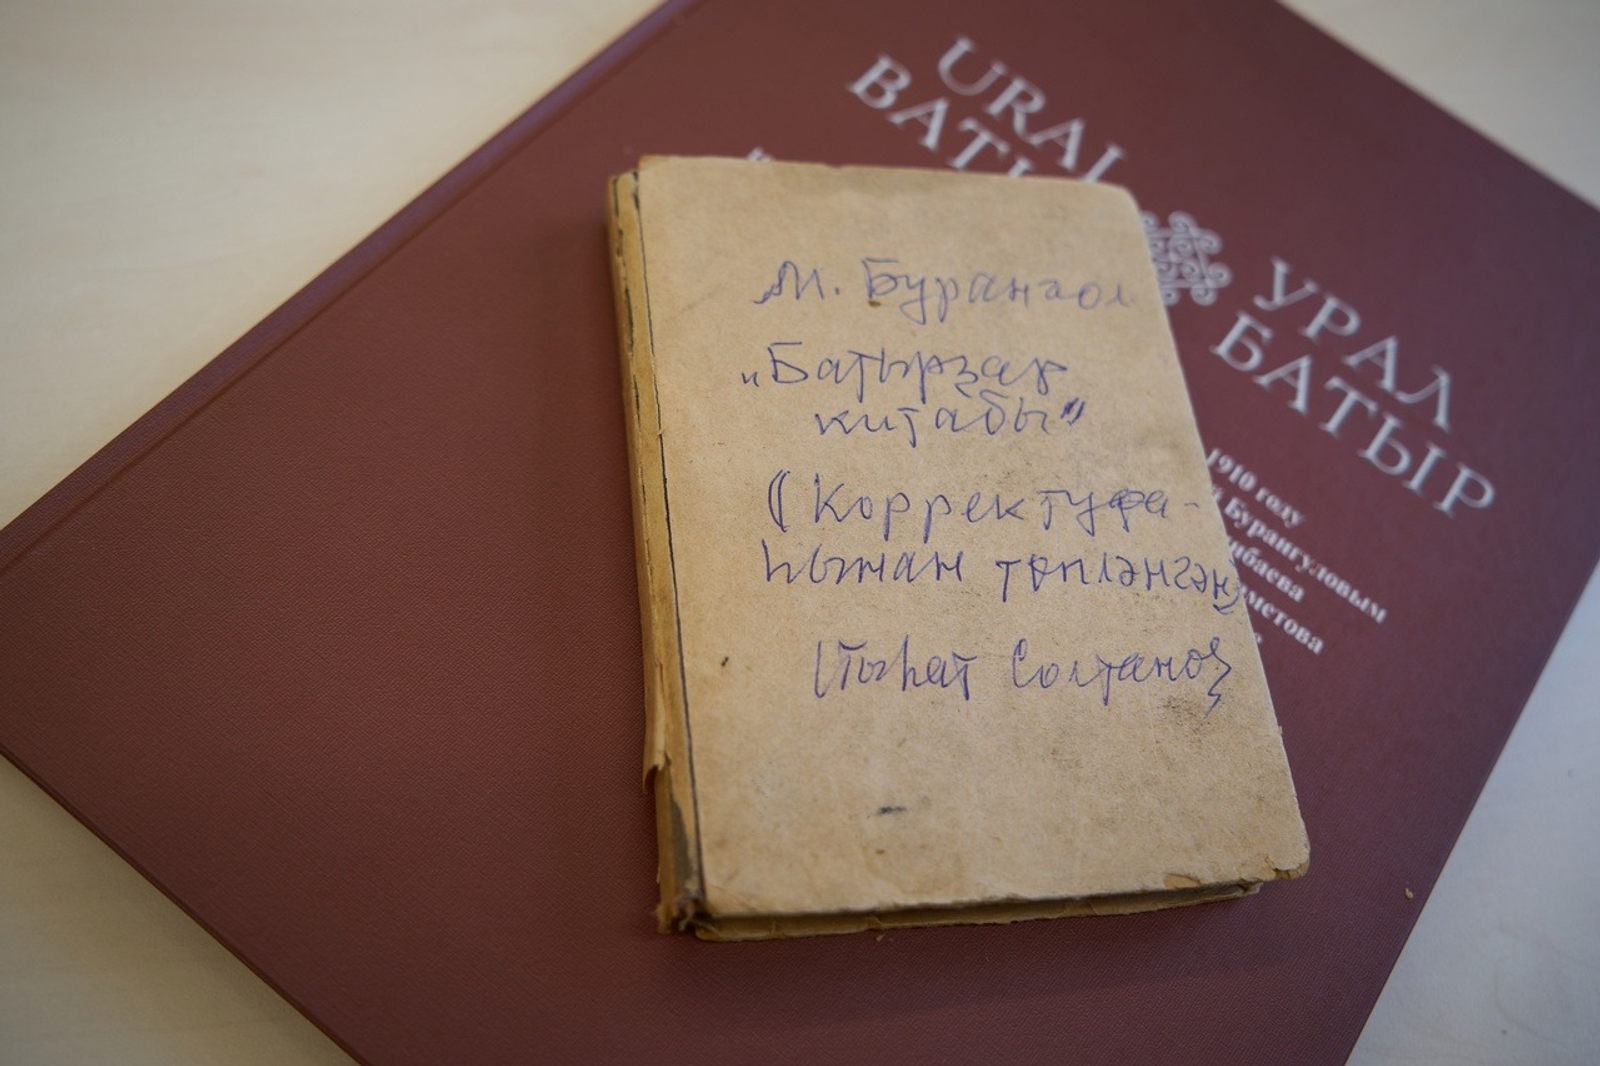 URAL
BAT
УРАЛ
БАТЫР
1910 году
й Бурангуловым
нбаева
метова
М. Буранғол
„Батырҙар
китабы"
(Корректура-
һынан төпләнгән)
Солтанов